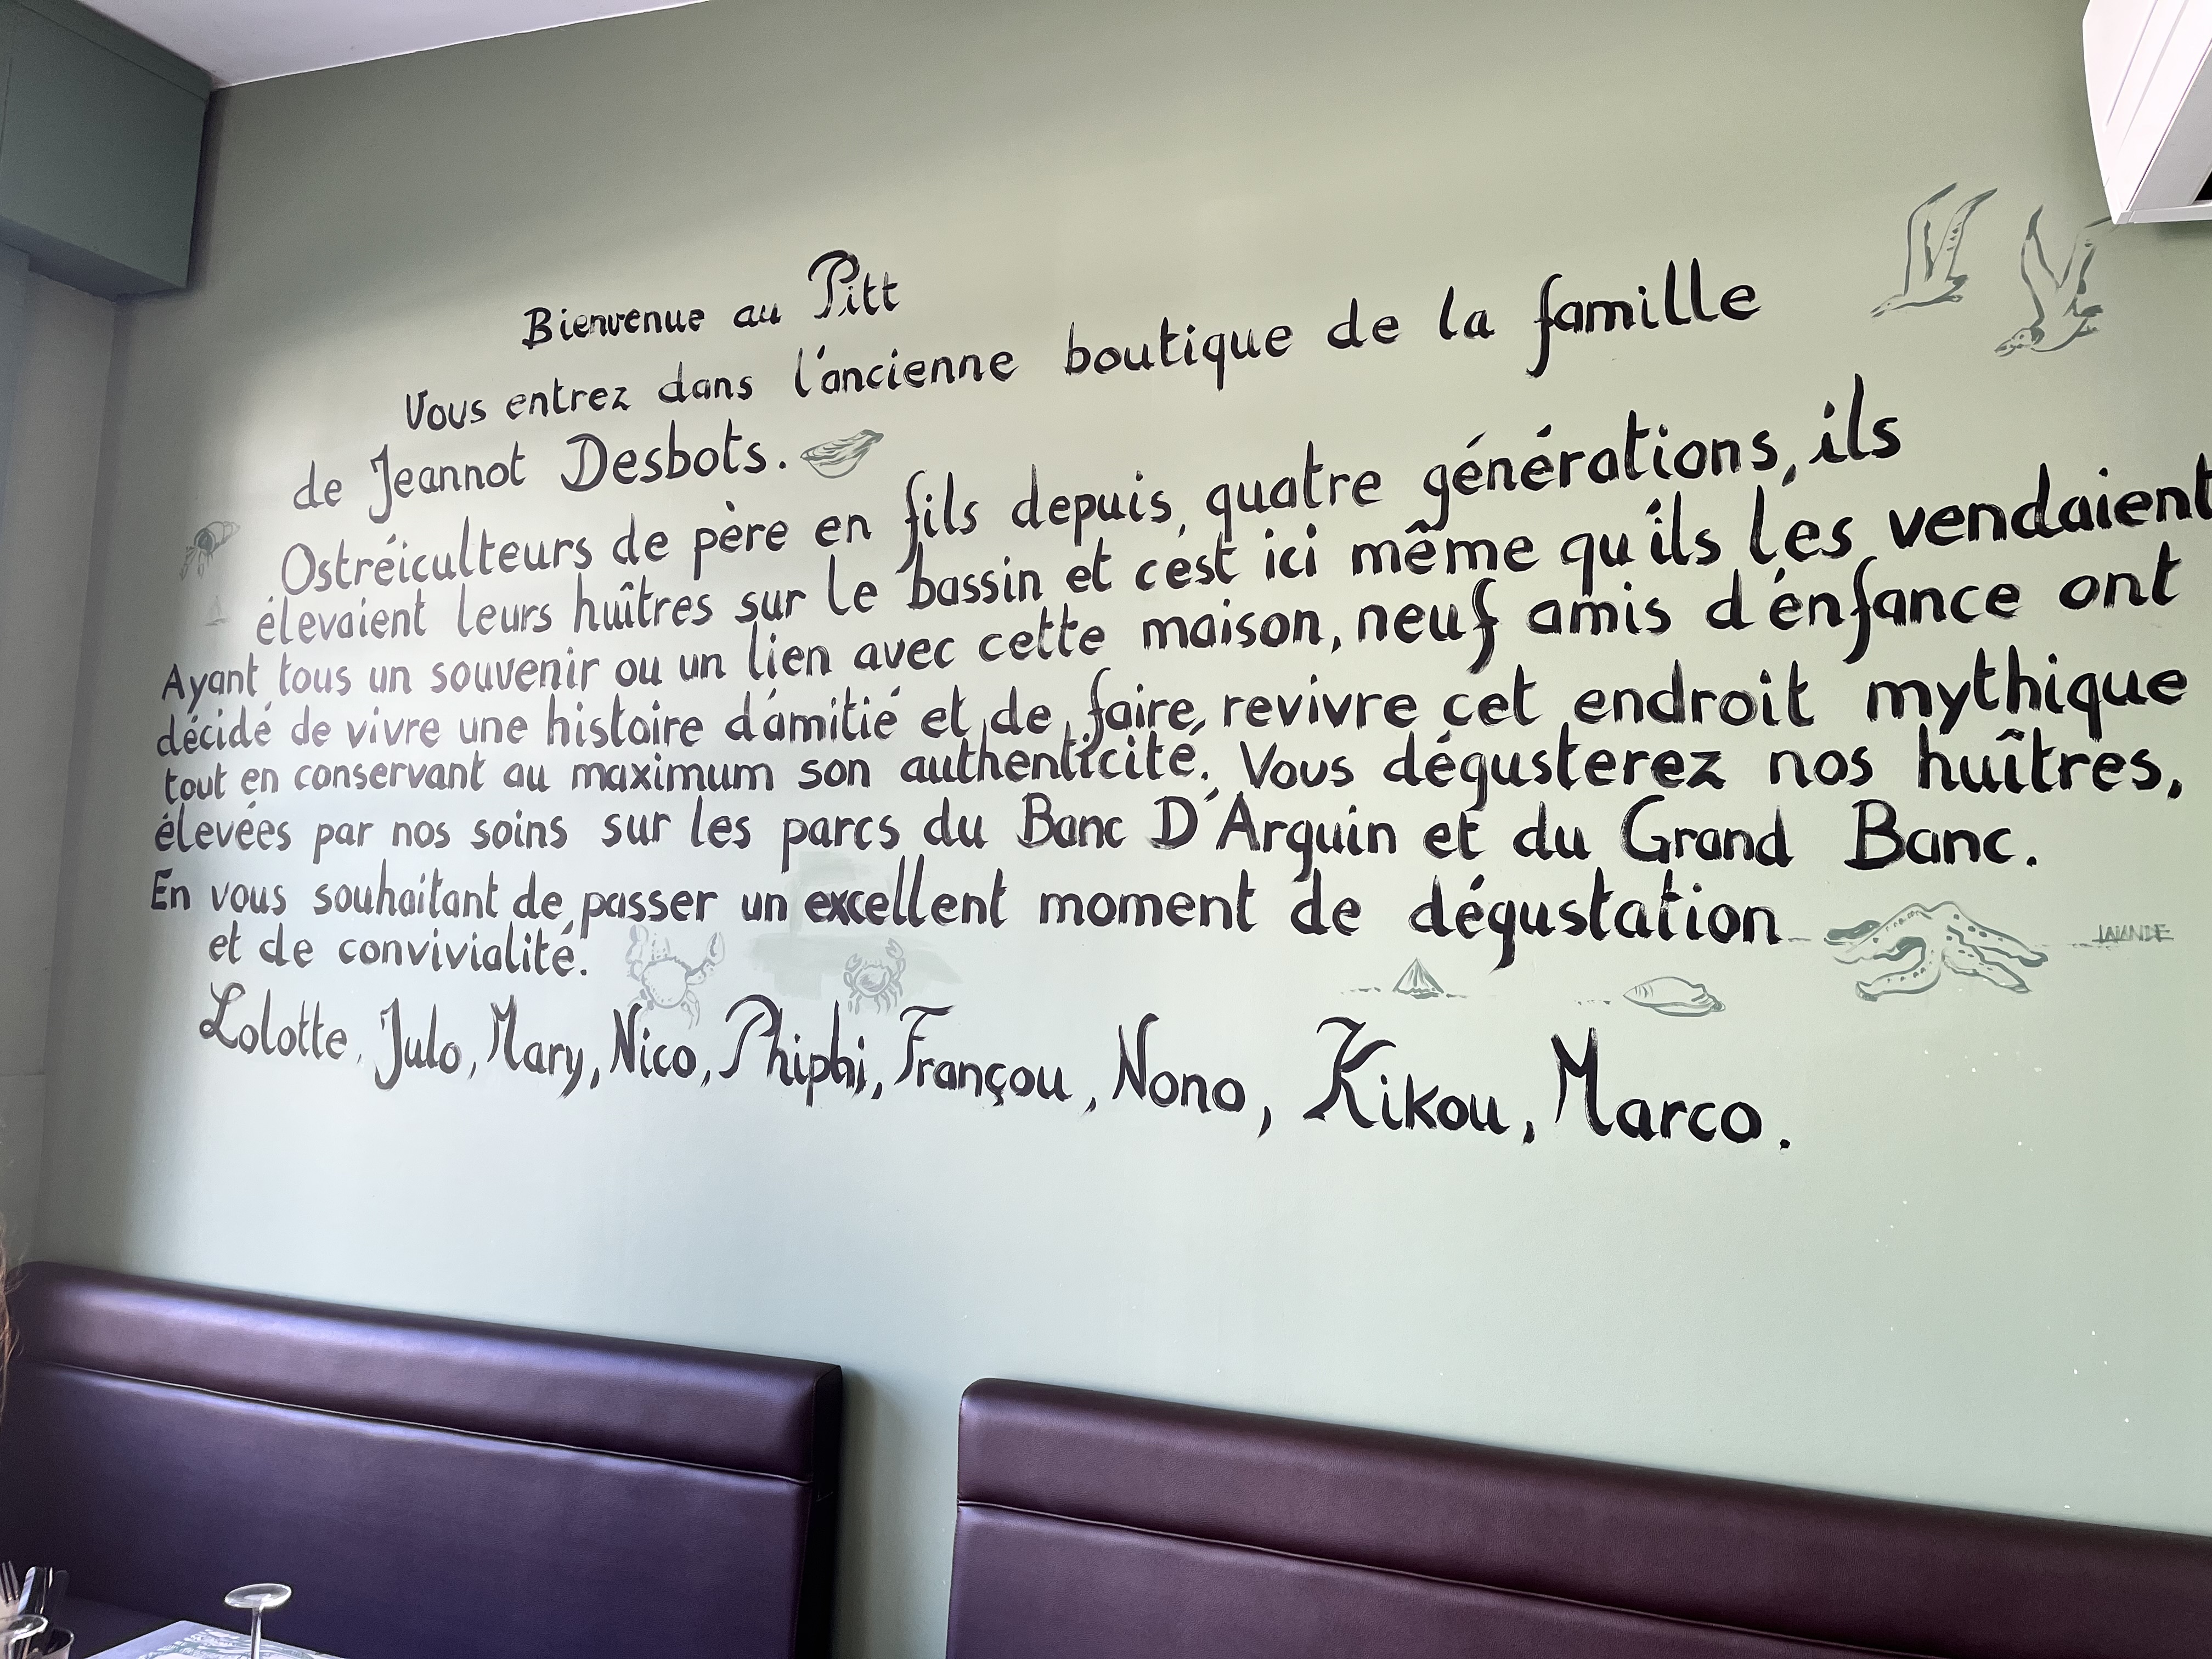 Bienvenue au Pitt
Vous entrez dans l'ancienne boutique de la famille
de Jeannot Desbots.
Ostréiculteurs de père en fils depuis quatre générations, ils
élevaient leurs huîtres sur le bassin et c'est ici même qu'ils les vendaient
Ayant tous un souvenir ou un lien avec cette maison, neuf amis d'enfance ont
décidé de vivre une histoire d'amitié et de faire revivre cet endroit mythique
tout en conservant au maximum son authenticité. Vous dégusterez nos huîtres,
élevées par nos soins sur les parcs du Banc D'Arguin et du Grand Banc.
En vous souhaitant de passer un excellent moment de dégustation
et de convivialité.
LALANDE
Lolotte, Julo, Mary, Nico, Phiphi, Françou, Nono, Kikou, Marco.